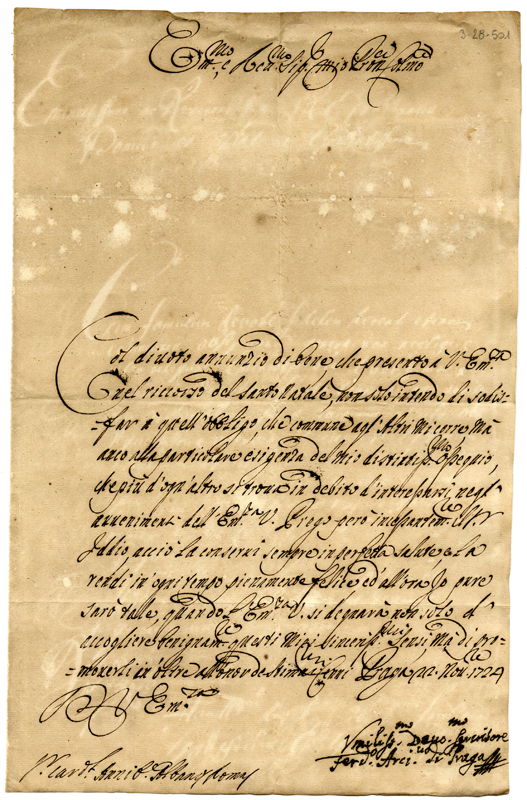 3-28-501
Em.mo e Reu.mo Sig.
Col diuoto annunzio di bene, che presento à V. Em.za
nel ricorso del santo Natale, non solo intendo di sodis-
-far à quell'obligo, che commune agl'Altri mi corre, mà
anco alla particolare esigenza del mio distintiss.mo Ossequio,
che più d'ogn'altro si troua in debito d'interessarsi negl'
auuenimenti dell'Em.za V. Prego però incessantem.te
Iddio, acciò la conserui sempre in perfetta salute, e la
rendi in ogni tempo pienamente felice, ed allora Io pure
sarò tale, quando l'Em.za V. si degnarà non solo d'
accogliere benignam.te questi miei sensi, mà di pro-
=mouerli in oltre all'onor de stimatiss.mi Praga 22. Nou. 1724
D V. Em.za
Vmiliss.mo Deuo.mo Seruitore
Ferd.o Arci. di Praga
S.r Card. Annib. Albani Roma